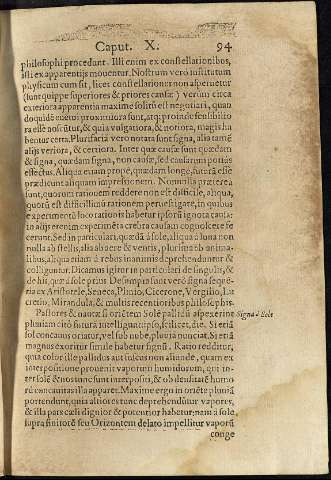 Caput. X. 94
philosophi procedant. Illi enim ex constellationibus,
isti ex apparentijs mouentur. Nostrum vero institutum
physicum cum sit, licet constellationes non aspernetur
(sunt quippe superiores & priores causæ) verum circa
exteriora apparentia maxime solitū est negotiari, quan
doquidē quę toti proximiora sunt, atq; proinde sensibilio
ra esse noscūtur, & quia vulgatiora, & notiora, magis ha
bentur certa. Plurifaria vero notata sunt signa, alio tamē
alijs veriora, & certiora. Inter quæ causæ sunt quædam
& signa, quædam signa, non causæ, sed causarum potius
effectus. Aliqua etiam prope, quædam longe, futurā esse
prædicunt aliquam impressionem. Nonnulla præterea
sunt, quorum rationem reddere non est difficile, aliqua,
quorū est difficillimū rationem peruestigare, in quibus
experimentū loco rationis habetur ipsorū ignota causa:
in alijs etenim experimēta crebra causam cognoscere fe
cerunt. Sed in particulari, quædā à sole, aliqua à luna non
nulla ab stellis, alia ab aere & ventis, plurima ab anima-
libus, aliqua etiam à rebus inanimis deprehenduntur &
colliguntur. Dicamus igitur in particulari de singulis, &
de his, quæ à sole prius. Desumpsi sunt vero signa seque
tia ex Aristotele, Seneca, Plinio, Cicerone, Vergilio, Lu
cretio, Mirandula, & multis recentioribus philosophis.
Pastores & nautæ si oriētem Sole pallidū aspexerint
Signa à Sole
pluuiam cito futurā intelligunt ipso, scilicet, die. Si etiā
sol concauus oriatur, vel sub nube, pluuia nunciat. Si etiā
magnus exoritur simile habetur signū. Ratio redditur,
quia color ille pallidus aut fuscus non aliunde, quam ex
interpositione prouenit vaporum humidorum, qui in-
ter solē & nos tunc sunt interpositi, & ob densitatē humo
rū concauitas illa apparet. Maxime ergo in oriēte pluuiā
portendunt, quia altiores tunc deprehendūtur vapores,
& illa pars cæli dignior & potentior habetur; nam à sole
supra finitorē seu Orizontem delato impellitur vaporū
conge